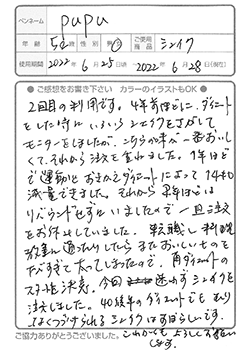 ペンネーム pupu
年齢 50歳 性別 男・女 ご使用商品 シェイク
使用期間 2022年6月25日頃～2022年6月28日(現在)
●ご感想をお書き下さい　カラーのイラストもOK●
2回目の利用です。4年前ほどに、ダイエット
をした時に いろいろ シェイクをさがして
モニターをしましたが、こちらが 一番おいし
くて、それから 注文を 重ねました。1年ほど
で 運動と おきかえダイエットによって 14キロ
減量できました。それから 2年ほどは
リバウンドせずに いましたので 一旦 注文
をお休みしていました。 転職し
また おいしいものを
たべすぎて 太ってしまったので、再ダイエットの
スタートを 決意。今回 迷わず シェイクを
注文しました。40後半の ダイエットでも むり
なくつづけられる シェイクは すばらしいです。
これからも よろしくお願いし
ます。
ご協力ありがとうございました。